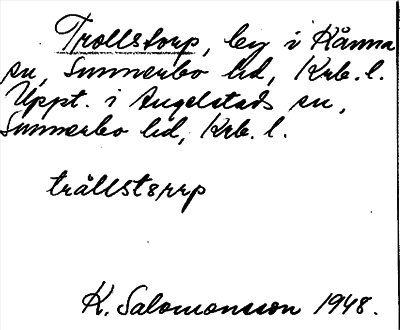 Trollstorp, by i Kånna
sn, Sunnerbo hd, Krb. l.
Uppt. i Angelstads sn,
Sunnerbo hd, Krb. l.
trållstorp
K. Salomonsson 1948.